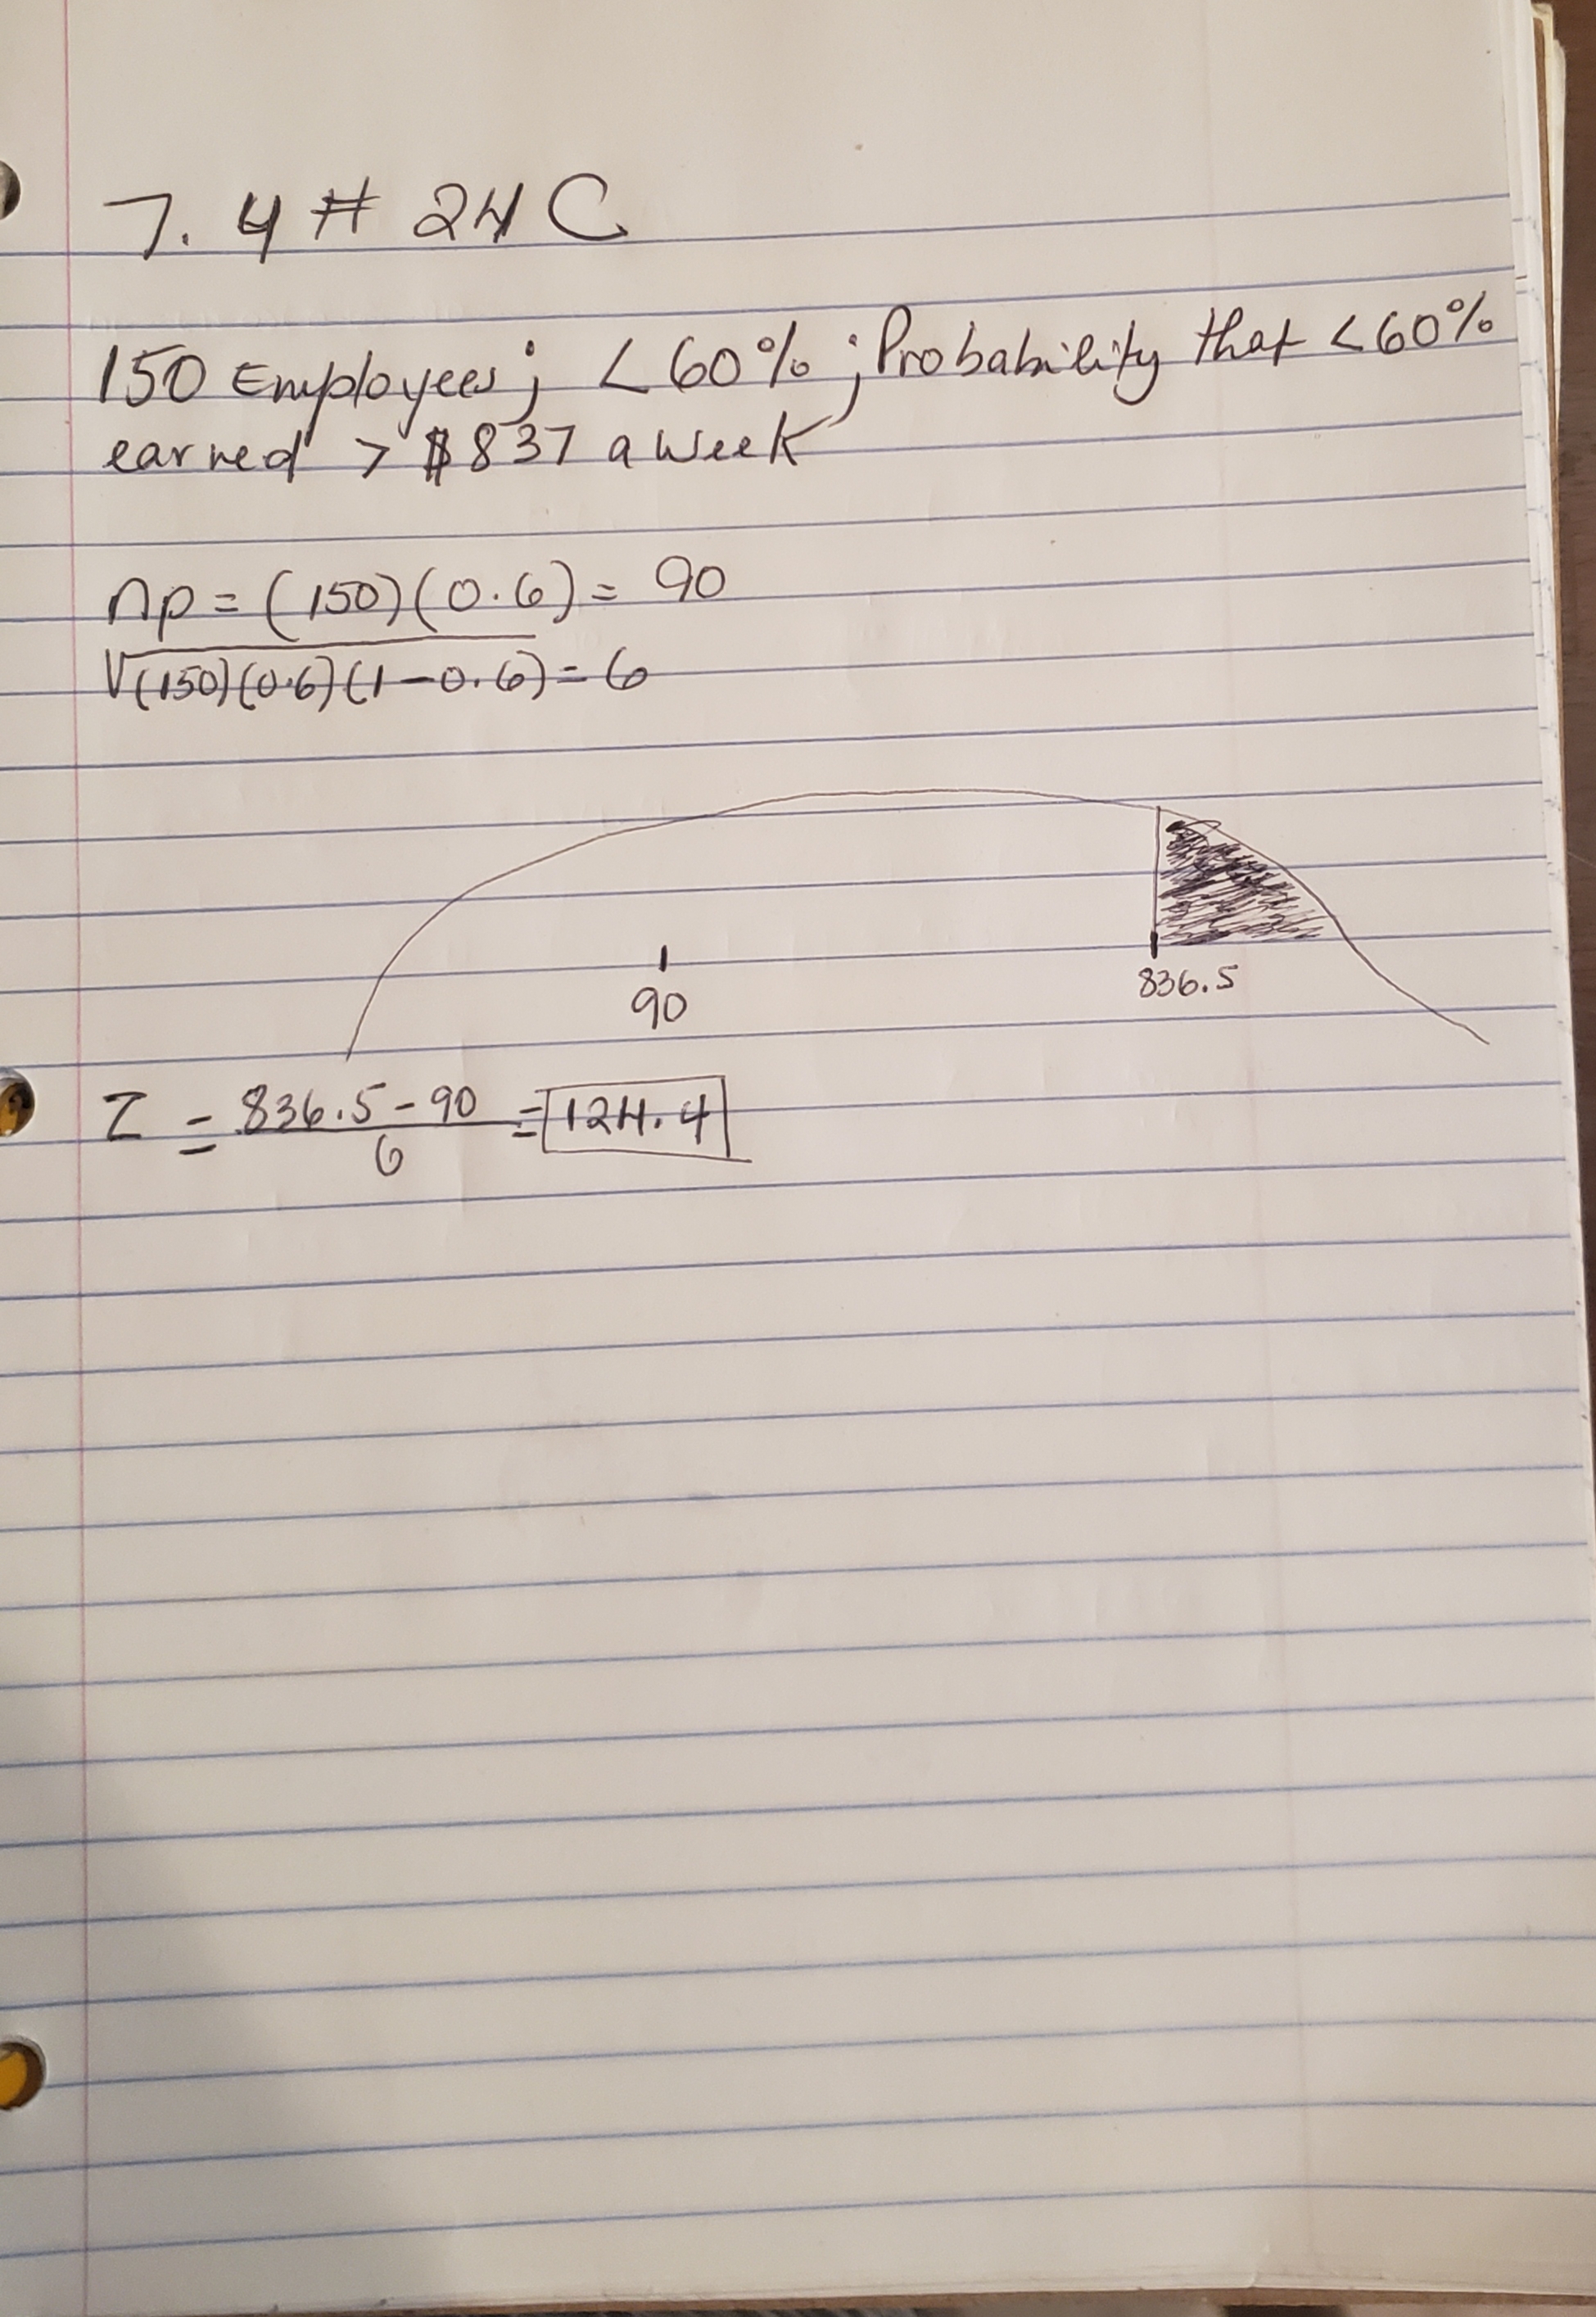 7.4 # 24 C
150 Employees; < 60%; Probability that < 60%
earned > $837 a week
np = (150)(0.6) = 90
√(150)(0.6)(1-0.6) = 6
90
836.5
Z = 836.5 - 90 / 6 = 124.4